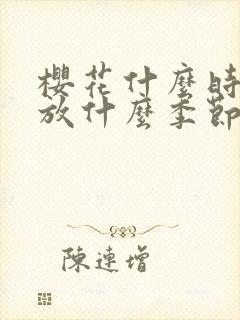 櫻花什麼時
放什麼季節
陳連增